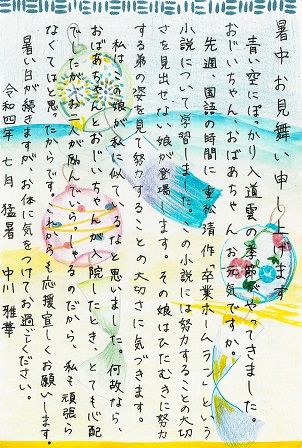 暑中お見舞い申し上げます
青い空にぽっかり入道雲の季節がやってきました。
おじいちゃん、おばあちゃんお元気ですか。
先週、国語の時間に「重松清作 卒業ホームラン」という
小説について学習しました。この小説には努力することの大切
さを見出せない娘が登場します。その娘はひたむきに努力
する弟の姿を見て努力することの大切さに気づきます。
私はこの娘が私に似ているなと思いました。何故なら、
おばあちゃんとおじいちゃんが入院したとき、とても心配
でしたがお二人が励んでいらっしゃるのだから、私も頑張ら
なくてはと思ったからです。これからも応援宜しくお願いします。
暑い日が続きますが、お体に気をつけてお過ごしください。
令和四年 七月 猛暑 中川 雅華